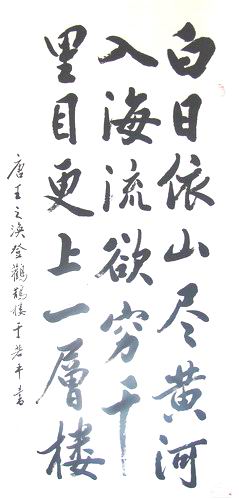 白日依山尽黄河
入海流欲穷千
里目更上一層樓
唐王之渙登鸛鵲樓于若平書